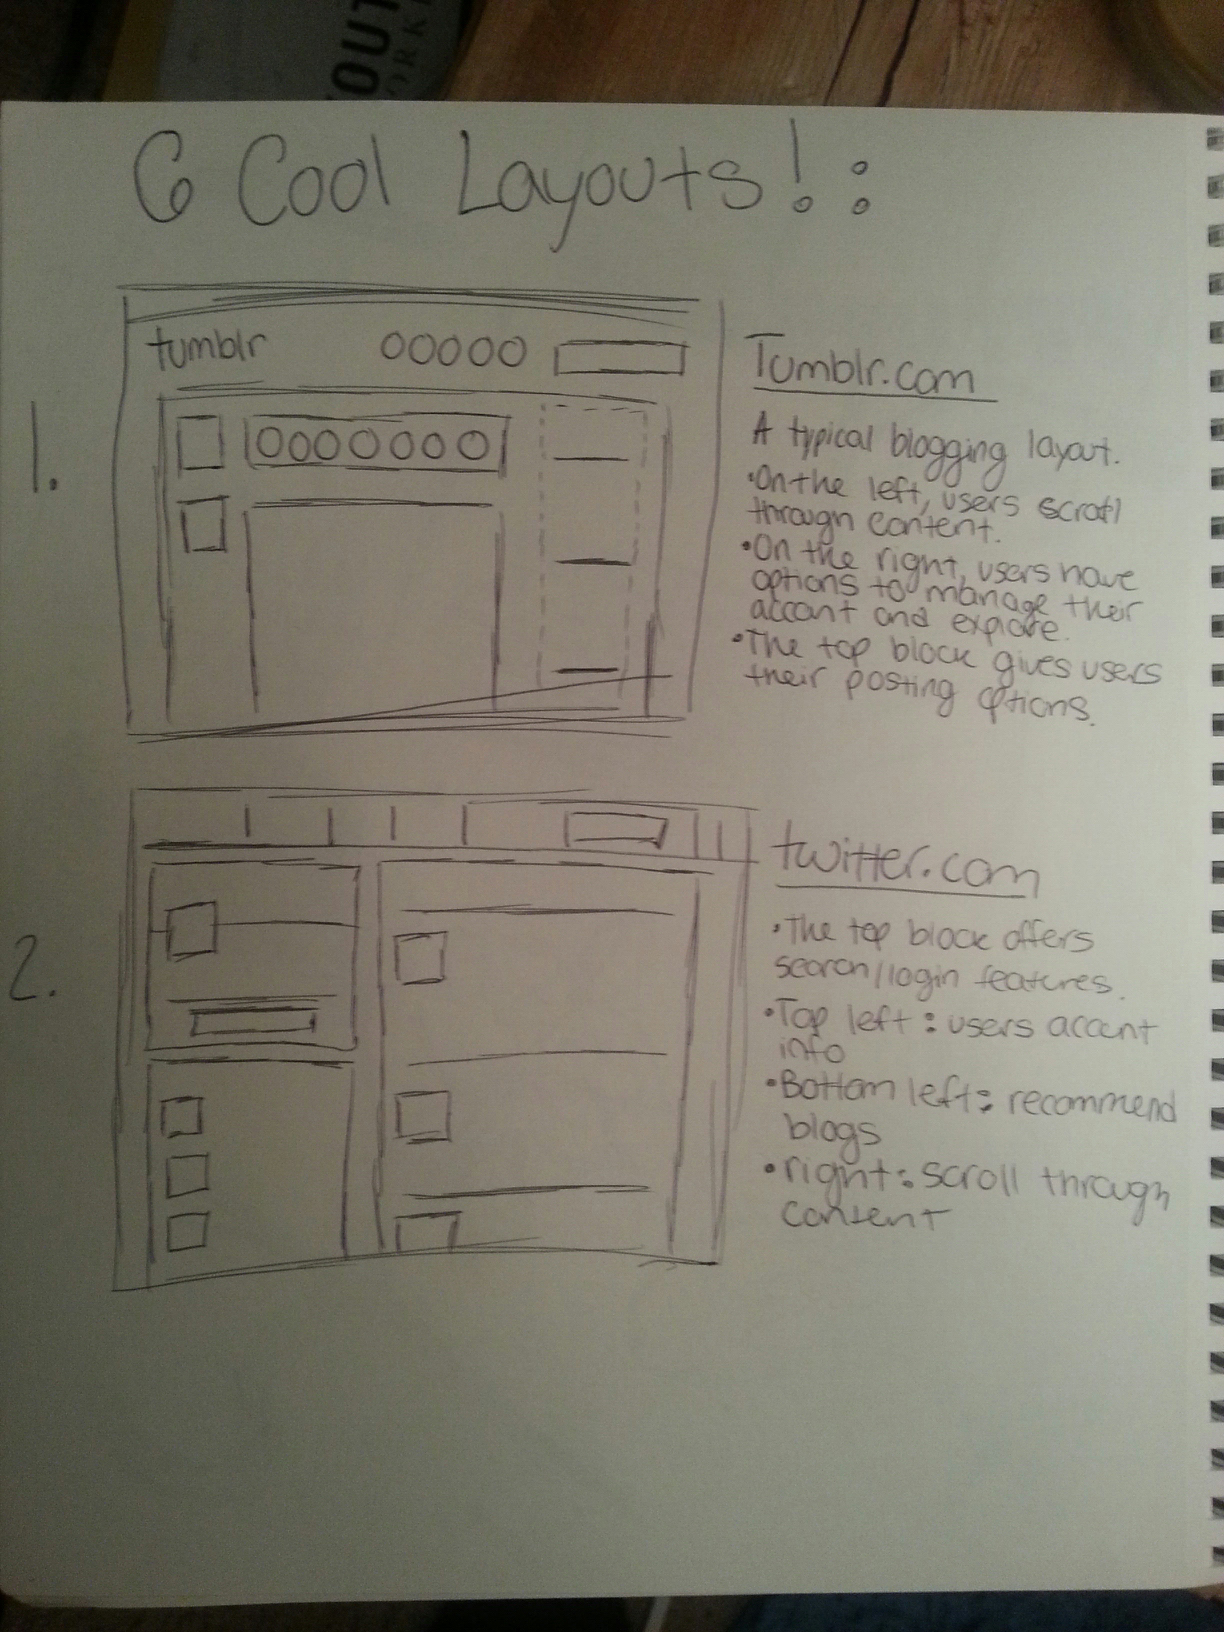 6 Cool Layouts!:
1.
tumblr
Tumblr.com
A typical blogging layout.
•On the left, users scroll
through content.
•On the right, users have
options to manage their
accont and explore.
•The top block gives users
their posting options.
2.
twitter.com
•The top block offers
search/login features.
•Top left: users accont
info
•Bottom left: recommend
blogs
•right: scroll through
content